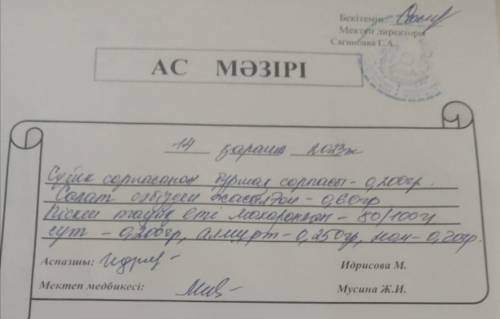 Бекітемін
Мектеп директоры
Сагинбаева Г.А.
АС МӘЗІРІ
14 қараша 2023ж
Сүйек сорпасынан бұршақ сорпасы - 0,200гр.
Салат - 0,60гр
Піскен тауық еті макаронмен - 80/100гр
сүт - 0,200гр, алмұрт - 0,250гр, нан - 0,20гр.
Аспазшы: Идрисова М.
Мектеп медбикесі: Мусина Ж.И.